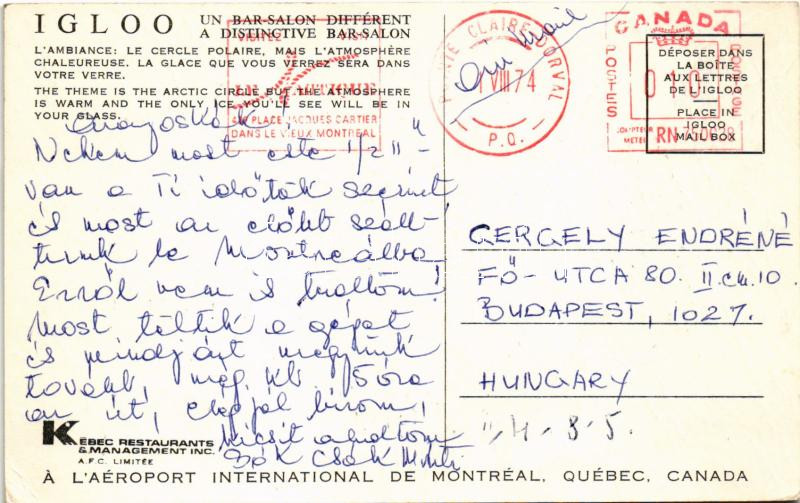 IGLOO
UN BAR-SALON DIFFÉRENT
A DISTINCTIVE BAR-SALON
L'AMBIANCE: LE CERCLE POLAIRE, MAIS L'ATMOSPHÈRE
CHALEUREUSE. LA GLACE QUE VOUS VERREZ SERA DANS
VOTRE VERRE.
THE THEME IS THE ARCTIC CIRCLE BUT THE ATMOSPHERE
IS WARM AND THE ONLY ICE YOU'LL SEE WILL BE IN
YOUR GLASS.
VISITEZ
PLACE JACQUES CARTIER
DANS LE VIEUX MONTREAL
POINTE CLAIRE-DORVAL
1 VIII 74
P.Q.
CANADA
POSTES
POSTAGE
RN
DÉPOSER DANS
LA BOÎTE
AUX LETTRES
DE L'IGLOO
PLACE IN
IGLOO
MAIL BOX
Anyoskák
Nekem most este 1/2 11
van a Ti időtök szerint
és most az előbb száll-
tunk le Montreálba
Erről nem is tudtom!
Most töltik a gépet
és mindjárt megyünk
tovább, még kb 5 óra
az út, eléggé bírom,
kicsit aludtom
Sok csók
GERGELY ENDRÉNÉ
FŐ-UTCA 80. II.em.10.
BUDAPEST, 1027.
HUNGARY
KÉBEC RESTAURANTS
& MANAGEMENT INC.
A.F.C. LIMITÉE
À L'AÉROPORT INTERNATIONAL DE MONTRÉAL, QUÉBEC, CANADA